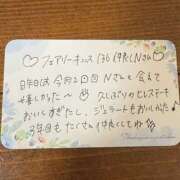 ♡フェアリーキッス 136 仲良しNさん♡
昨日は今月2回目Nさんと会えて
嬉しかった〜♡ 久しぶりのヒレステーキ
おいしすぎたし、ジェラートもおいしかったね♪
3年目もたくさん仲良くしてね